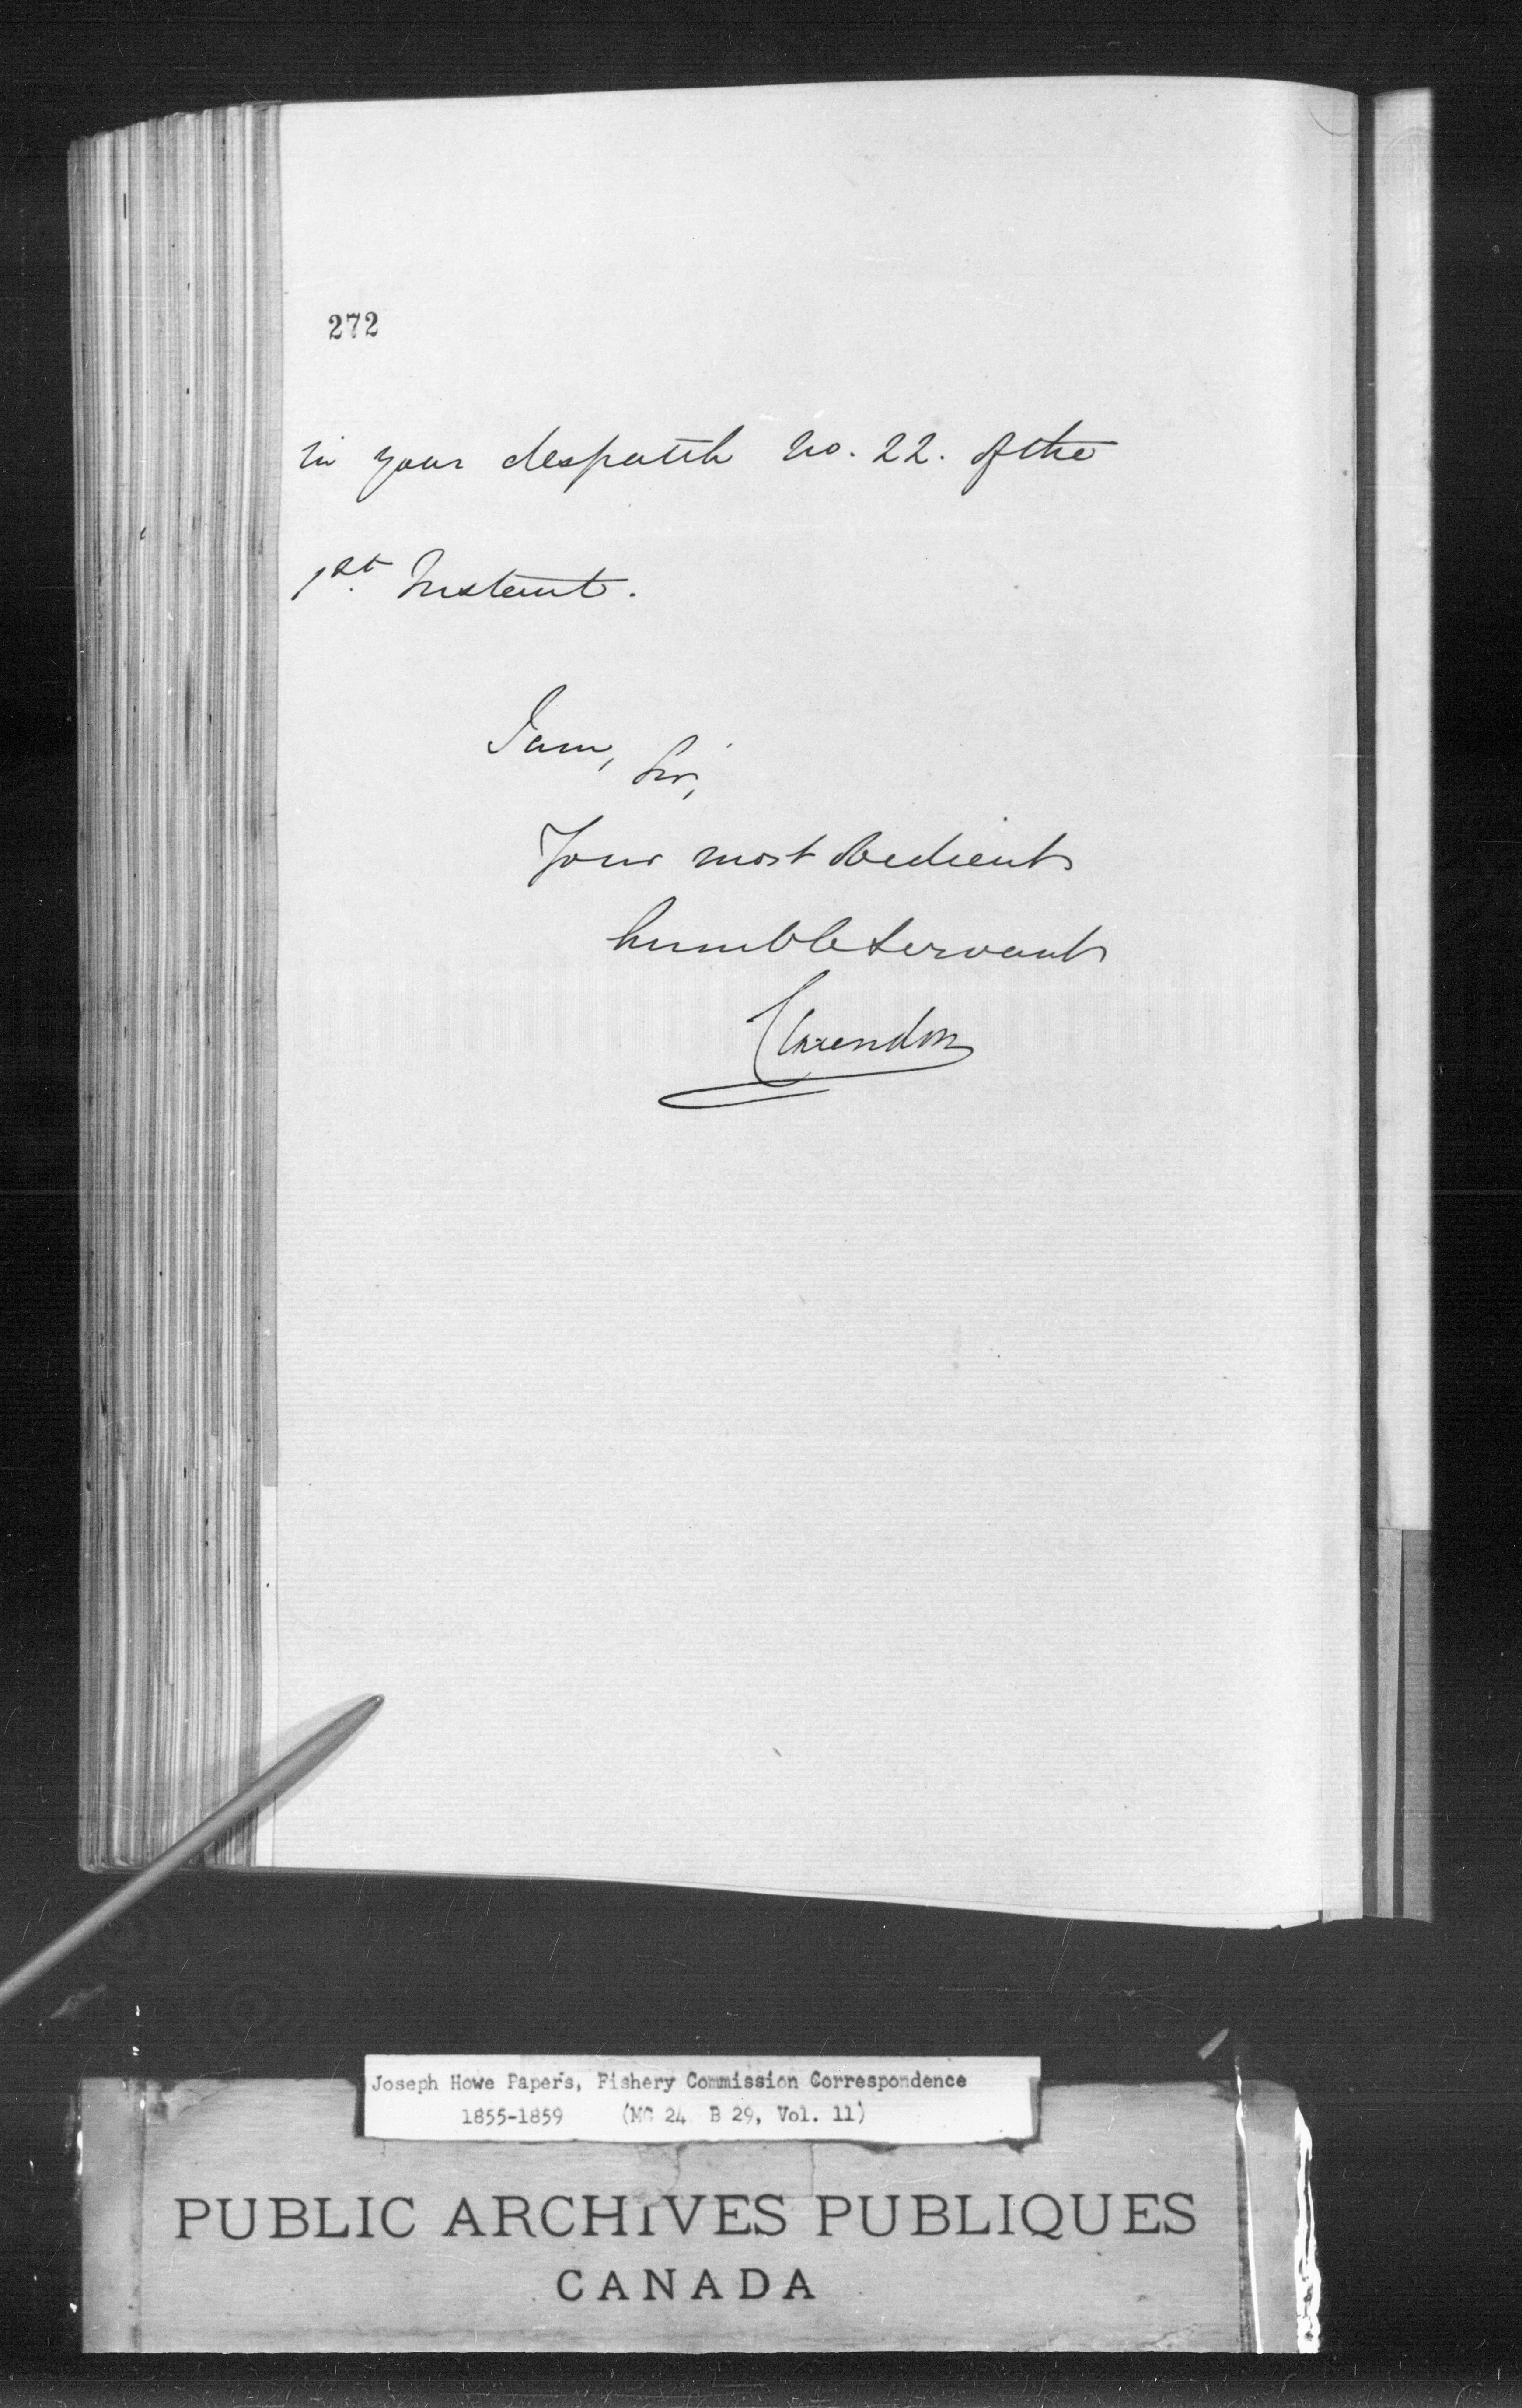 272
in your despatch No. 22. of the
1st. Instant.
I am,
Sir,
Your most obedient
humble Servant
Clarendon
Joseph Howe Papers, Fishery Commission Correspondence
1855-1859 (MG 24 B 29, Vol. 11)
PUBLIC ARCHIVES PUBLIQUES
CANADA